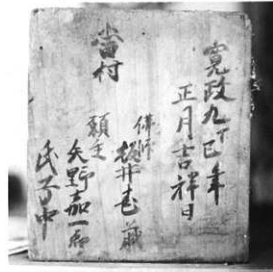 寛政九丁巳年
正月吉祥日
佛師
坂井甚藏
願主
矢野嘉一郎
氏子中
當村